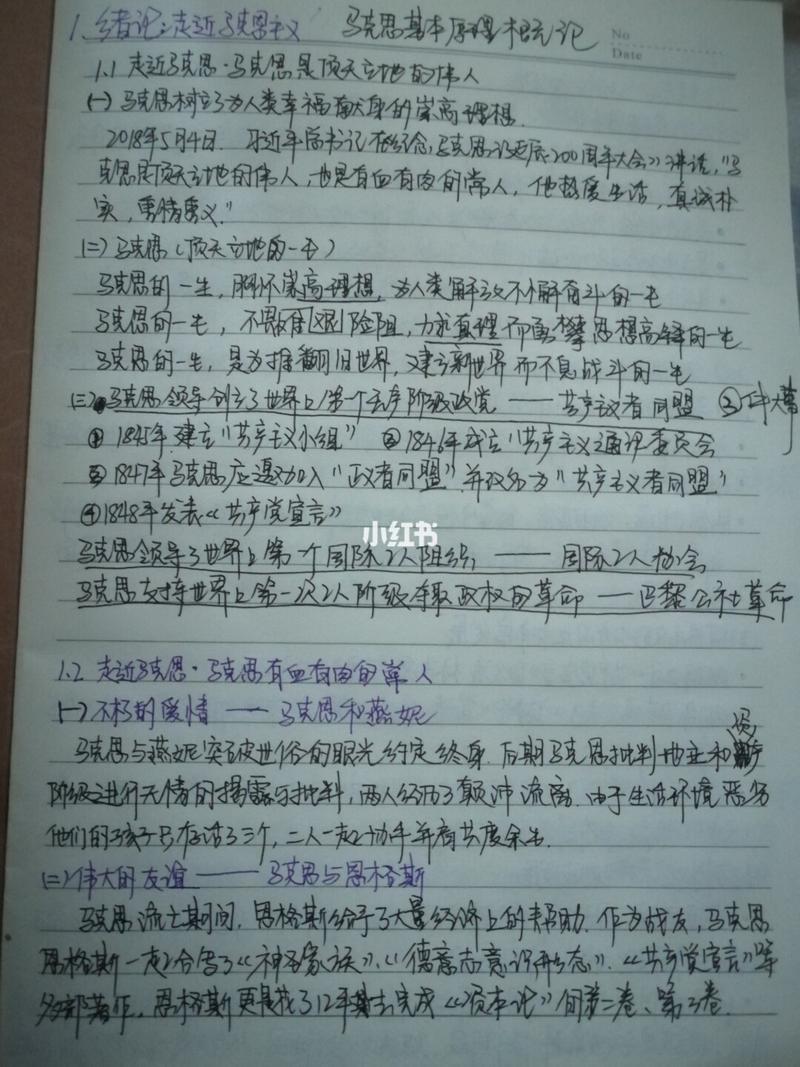 1.绪论:走近马克思主义 马克思基本原理概论记
No
Date
1.1 走近马克思·马克思是顶天立地的伟人
(一)马克思树立了为人类幸福献身的崇高理想.
2018年5月4日.习近平总书记在纪念马克思诞辰200周年大会》讲话,"马
克思是顶天立地的伟人,也是有血有肉的常人,他热爱生活,真诚朴
实,重情重义."
(二)马克思(顶天立地的一生)
马克思的一生,胸怀崇高理想,为人类解放不懈奋斗的一生
马克思的一生,不畏艰险阻,力求真理而勇攀思想高峰的一生
马克思的一生,是为推翻旧世界,建立新世界而不息战斗的一生
(三)马克思领导创立了世界上第一个无产阶级政党——共产主义者同盟
①1845年建立"共产主义小组" ②1846年成立"共产主义通讯委员会
③1847年马克思应邀加入"正义者同盟"并改名为"共产主义者同盟"
④1848年发表《共产党宣言》
小红书
马克思领导了世界上第一个国际工人组织,——国际工人协会
马克思支持世界上第一次工人阶级夺取政权的革命——巴黎公社革命
1.2 走近马克思·马克思有血有肉的常人
(一)不朽的爱情——马克思和燕妮
马克思与燕妮突破世俗的眼光约定终身.后期马克思批判地主和资产
阶级进行无情的揭露与批判,两人经历了颠沛流离.由于生活环境恶劣
他们的孩子只存活了三个,二人一起协手并肩共度余生.
(二)伟大的友谊——马克思与恩格斯
马克思流亡期间.恩格斯给予了大量经济上的帮助.作为战友,马克思
恩格斯一起合写了《神圣家族》、《德意志意识形态》.《共产党宣言》等
多部著作.恩格斯更是花了12年去完成《资本论》的第二卷、第三卷.